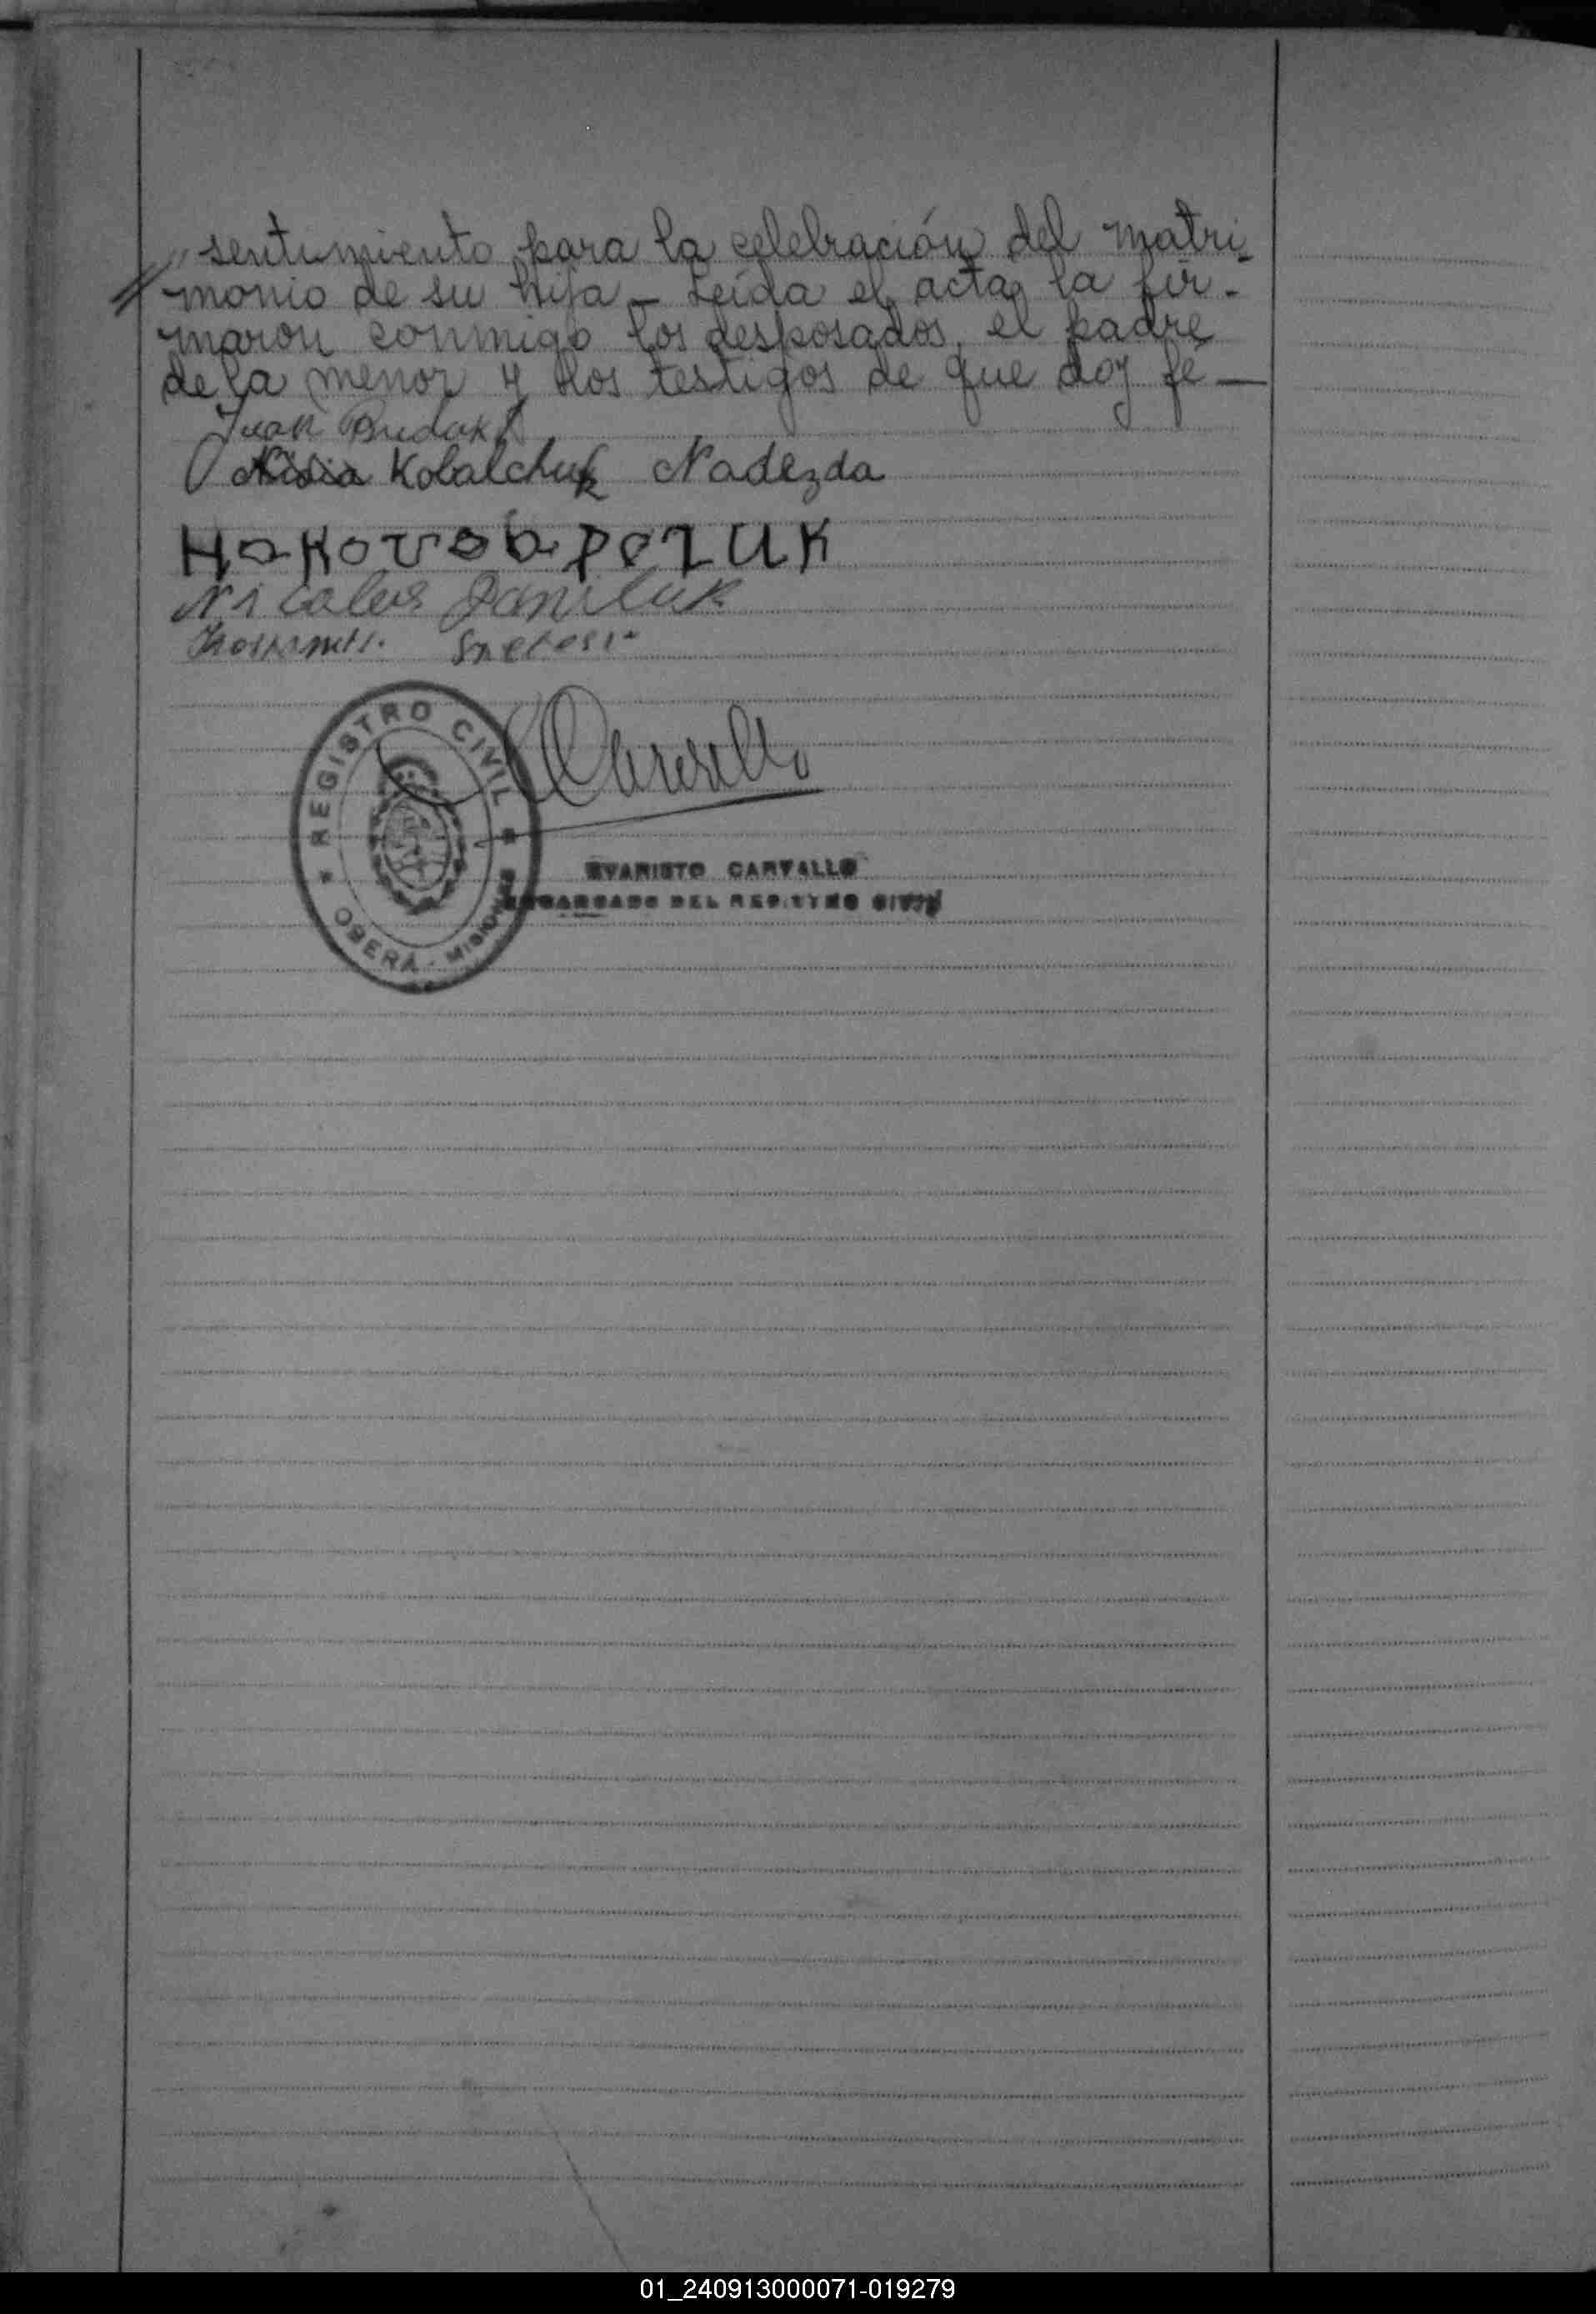 sentimiento para la celebración del matri-
monio de su hija - Leída el acta, la fir-
maron conmigo los desposados, el padre
de la menor y los testigos de que doy fé —
Juan Buduk
Kobalchuk Nadezda
Nicolas Daniluk
REGISTRO CIVIL
OBERÁ - MISIONES
EVARISTO CARVALLO
ENCARGADO DEL REGISTRO CIVIL
01_240913000071-019279